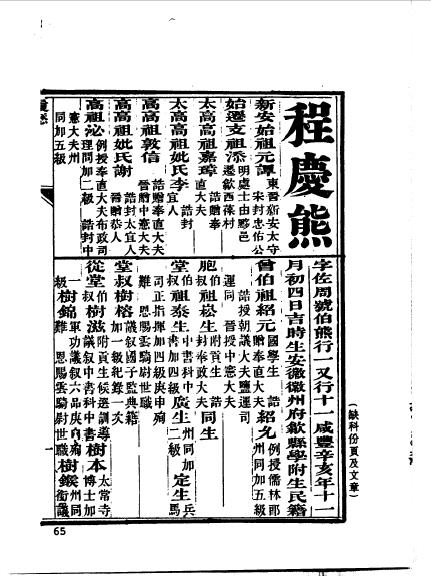 （缺科份頁及文章）
程慶熊
字佐周號伯熊行一又行十一咸豐辛亥年十一
月初四日吉時生安徽徽州府歙縣學附生民籍
新安始祖元譚東晉新安太守
宋封忠佑公
始遷支祖添明處士由黟邑
遷歙西葆村
太高高祖嘉瑋誥贈奉
直大夫
太高高祖妣氏李誥封
宜人
高高祖敦信誥贈奉直大夫
晉贈中憲大夫
高高祖妣氏謝誥封太宜人
晉贈恭人
高祖泌例授奉直大夫布政司
理問加二級 誥封中
憲大夫州
同加五級
曾伯祖紹元國學生 誥
贈奉直大夫
紹九例授儒林郎
州同加五級
誥授朝議大夫鹽運司
運同 晉授中憲大夫
胞伯叔祖崧生附貢生 誥
封奉政大夫
同生
堂伯叔祖泰生中書科中
書加四級
廣生州同加
二級
定生兵
馬
司正指揮加四級庚申殉
難 恩賜雲騎尉世職
堂叔樹榕議叙國子監典籍
加一級紀錄一次
從堂伯叔樹滋附貢生候選訓導
議叙中書科中書
樹本太常寺
博士加
一
級
樹錦軍功議叙六品庚申殉
難 恩賜雲騎尉世職
州同
銜議
一
65